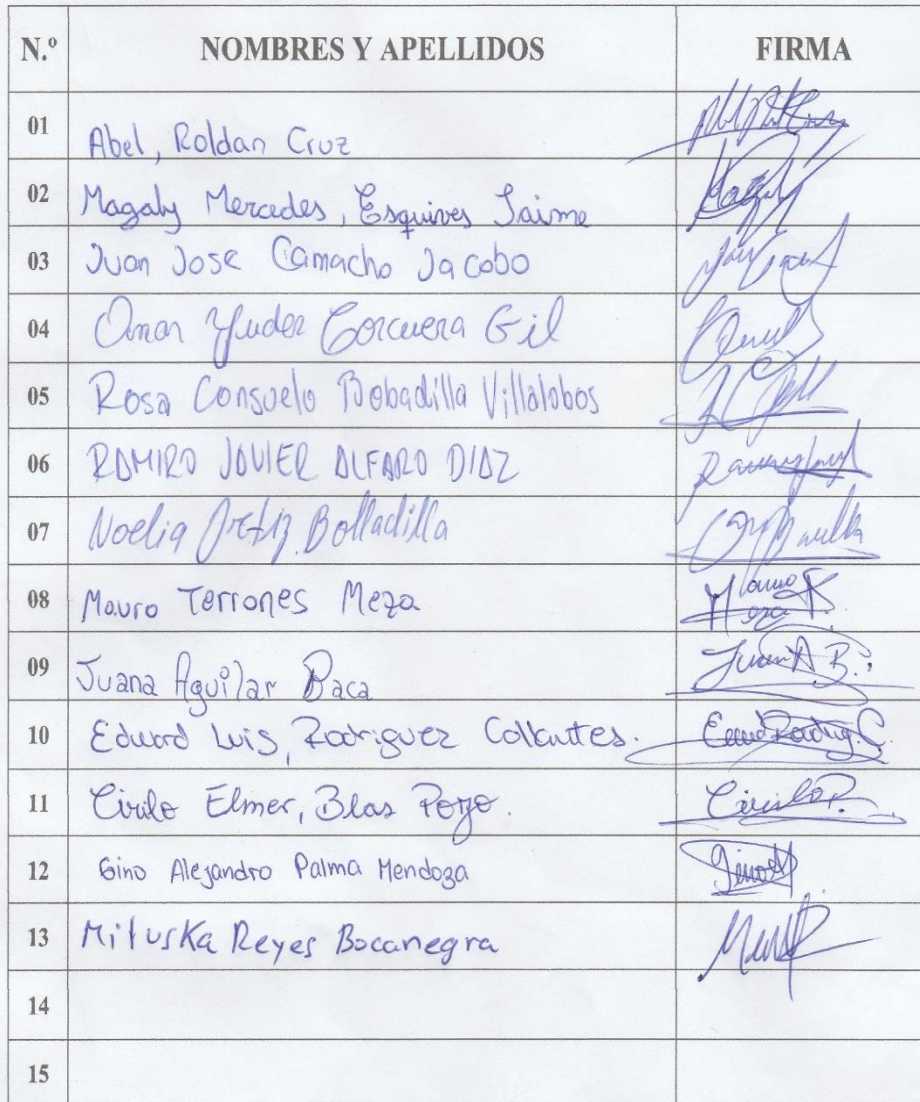 N.º NOMBRES Y APELLIDOS FIRMA
01 Abel, Roldan Cruz
02 Magaly Mercedes, Esquives Jaime
03 Juan Jose Camacho Jacobo
04 Omar Yuder Corcuera Gil
05 Rosa Consuelo Bobadilla Villalobos
06 RAMIRO JAVIER ALFARO DIAZ
07 Noelia Ortiz Bobadilla
08 Mauro Terrones Meza
09 Juana Aguilar Baca Juana A. B.
10 Eduard Luis, Rodriguez Collantes.
11 Cirilo Elmer, Blas Pozo. Cirilo P.
12 Gino Alejandro Palma Mendoza
13 Mituska Reyes Bocanegra
14
15